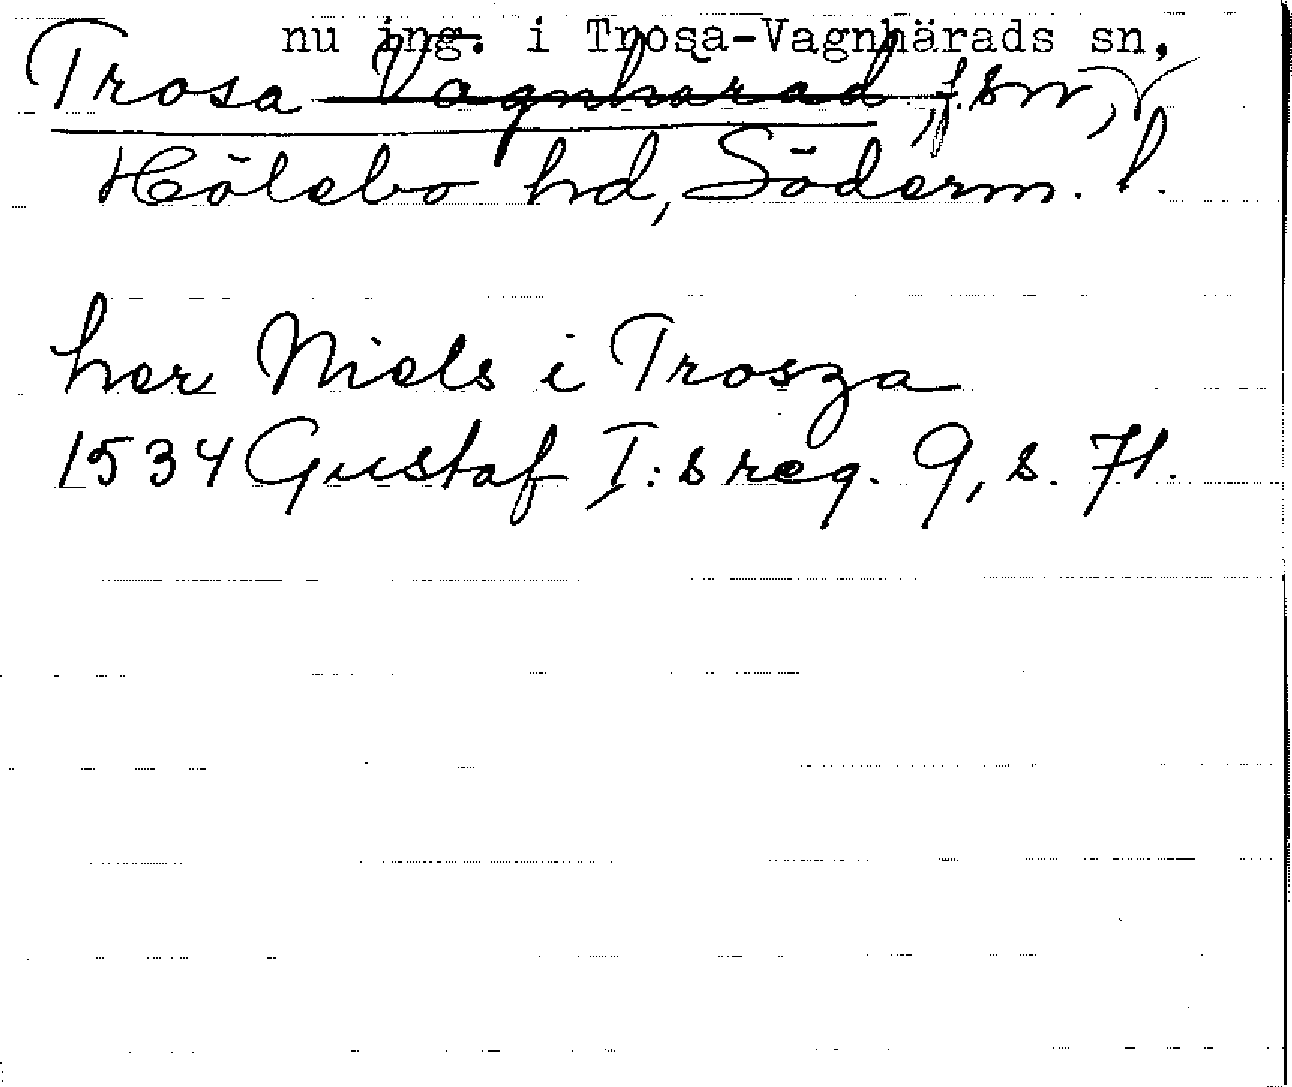 nu ing. i Trosa-Vagnhärads sn.
Trosa Vagnhärad, f. sn,
Hölebo hd, Söderm. l.
her Niels i Trosza
1534 Gustaf I:s reg. 9, s. 71.